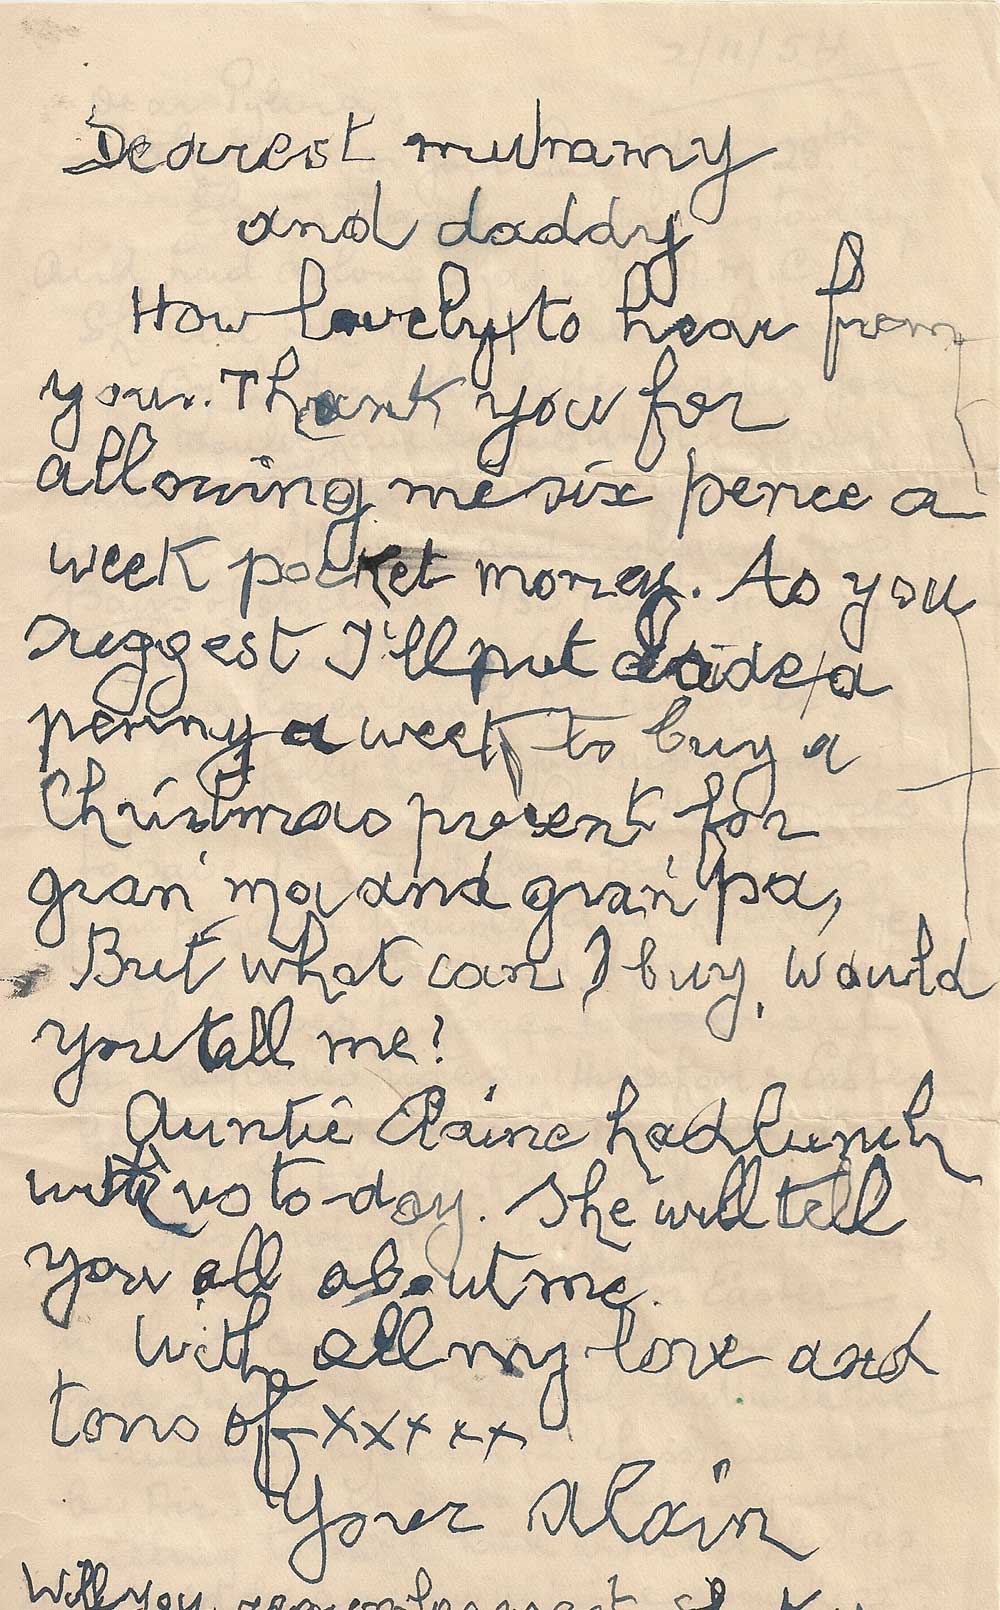 Dearest mummy
and daddy
How lovely to hear from
you. Thank you for
allowing me six pence a
week pocket money. As you
suggest I'll put aside a
penny a week to buy a
Christmas present for
gran'ma and gran'pa,
But what can I buy, would
you tell me?
Auntie Claire had lunch
with us to-day. She will tell
you all about me.
With all my love and
tons of xxxxx
Your Alain
Will you